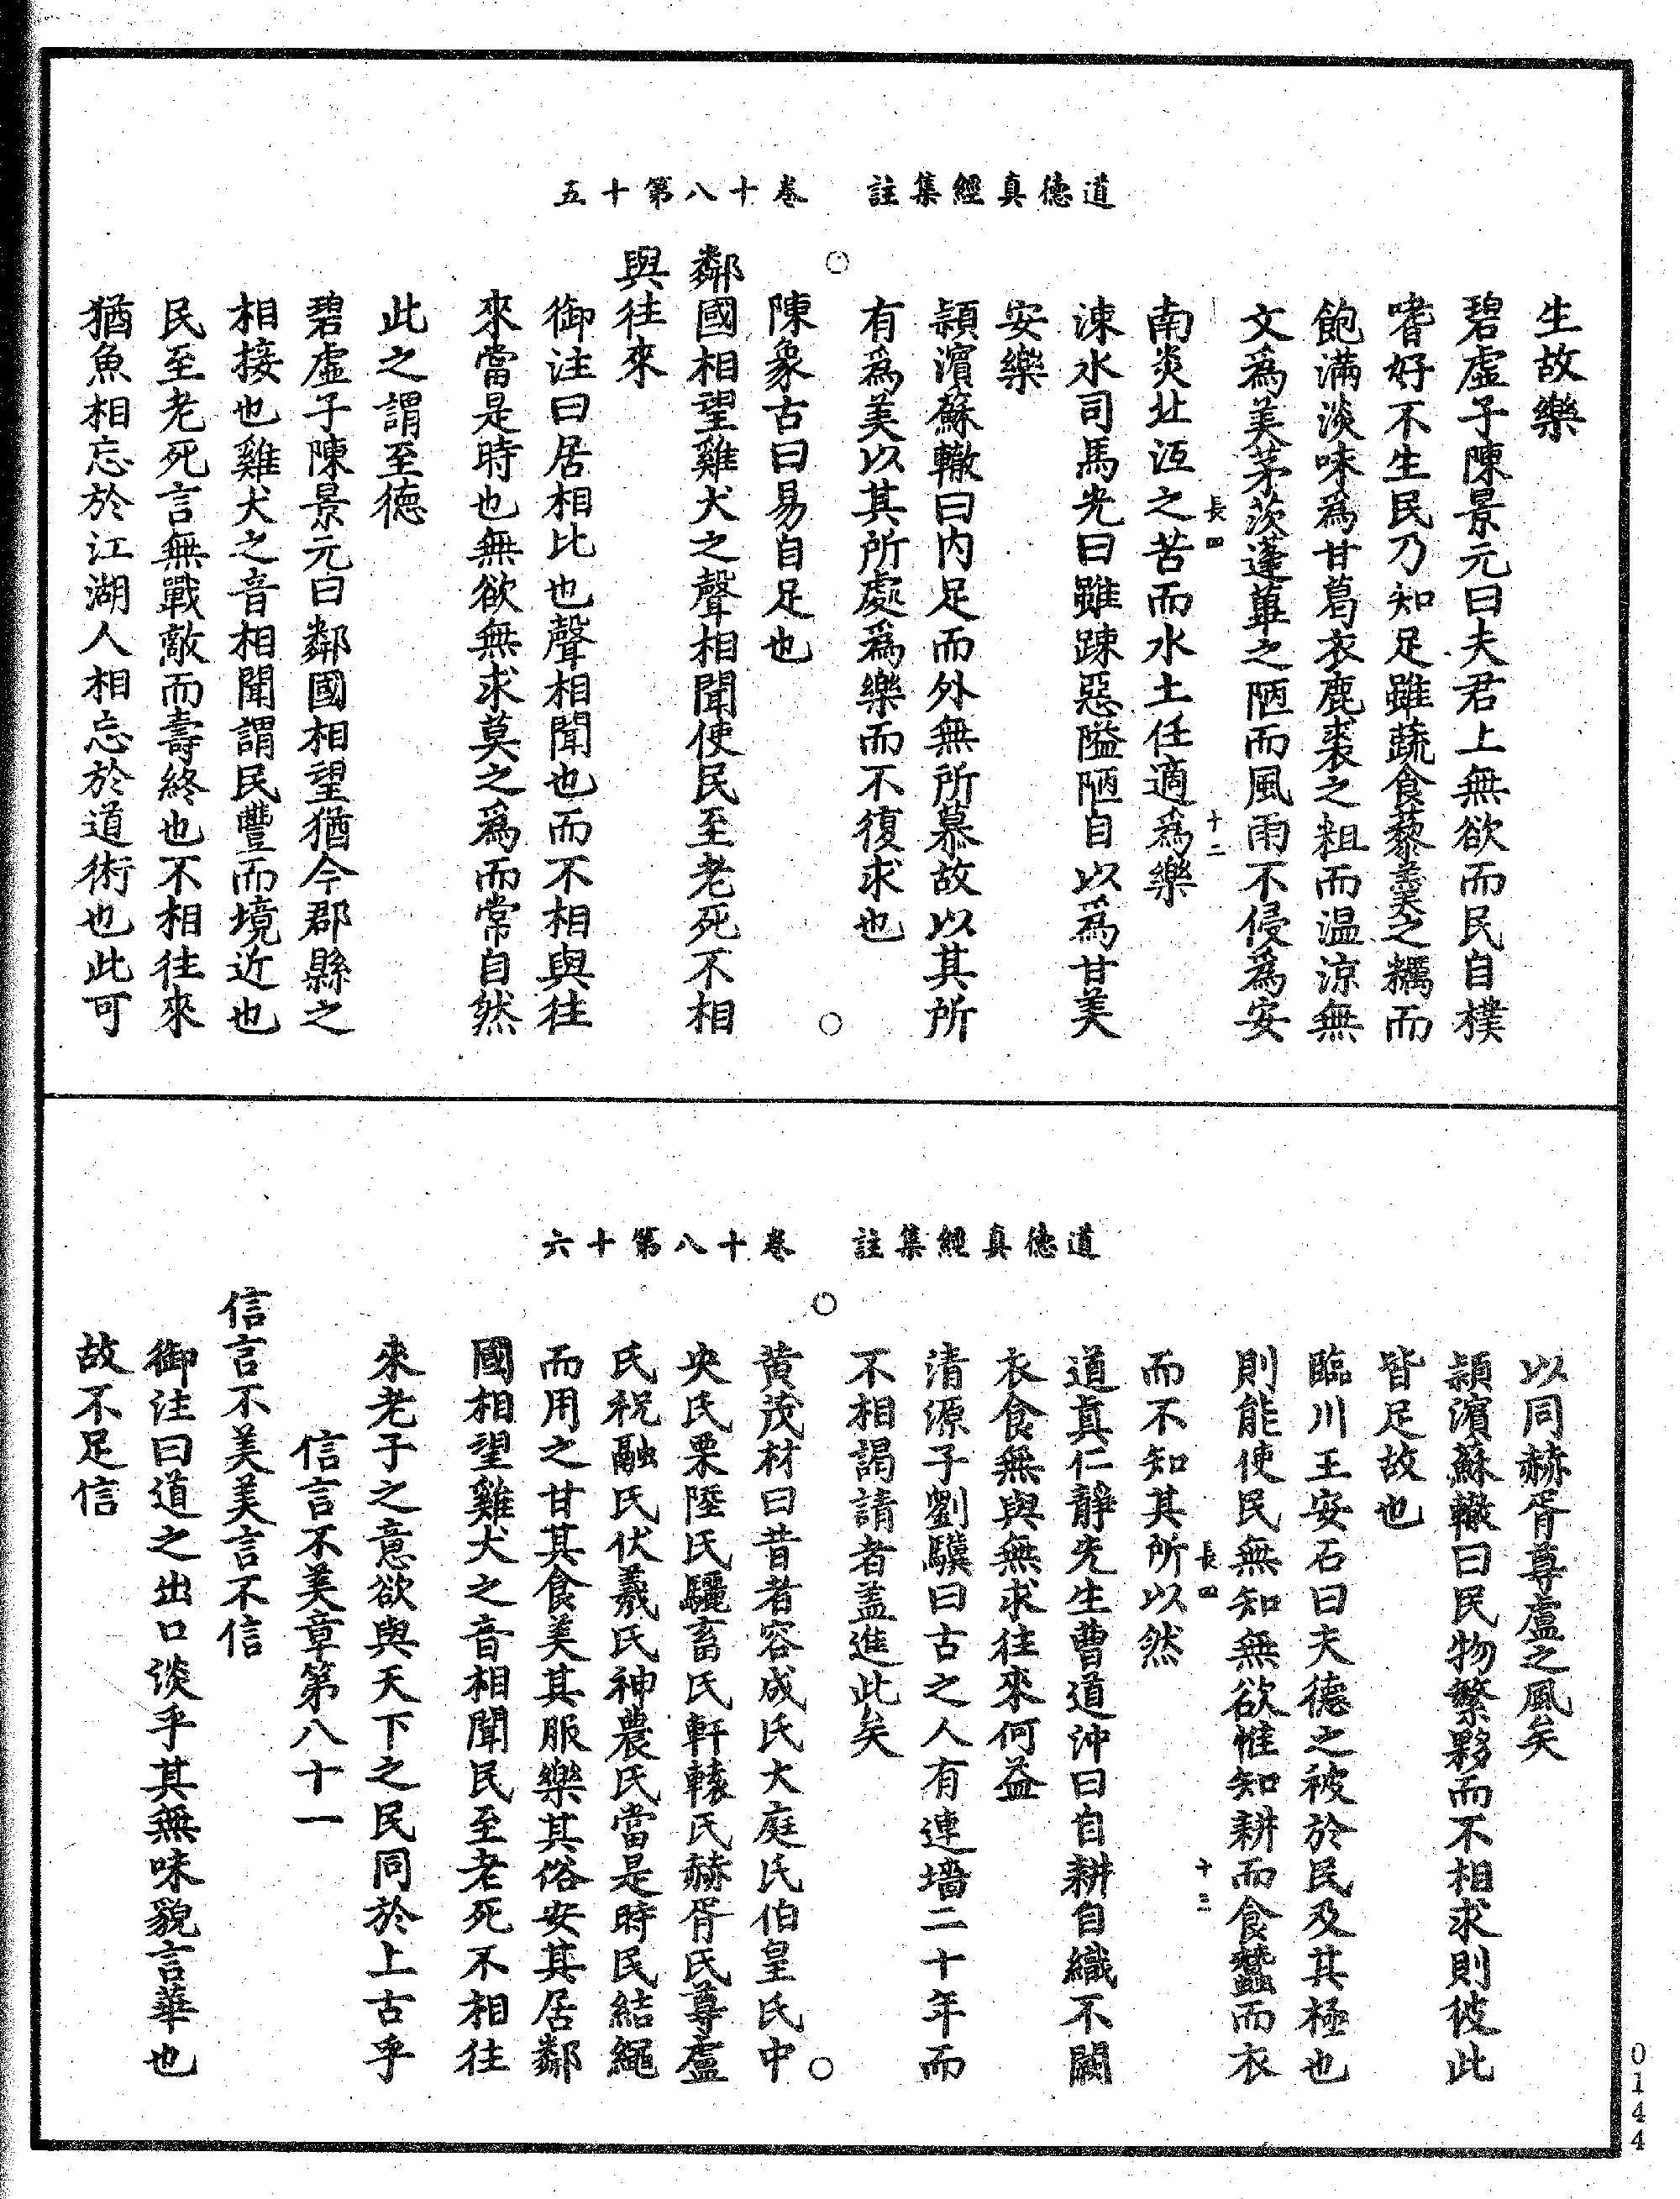 道德真經集註　卷十八第十五
生故樂
碧虛子陳景元曰夫君上無欲而民自樸
嗜好不生民乃知足雖蔬食藜羹之糲而
飽滿淡味爲甘葛衣鹿裘之粗而温涼無
文爲美茅茨蓬蓽之陋而風雨不侵爲安
長四　十二
南炎北沍之苦而水土任適爲樂
涑水司馬光曰雖踈惡隘陋自以爲甘美
安樂
潁濱蘇轍曰内足而外無所慕故以其所
有爲美以其所處爲樂而不復求也
陳象古曰易自足也
鄰國相望雞犬之聲相聞使民至老死不相
與往來
御注曰居相比也聲相聞也而不相與往
來當是時也無欲無求莫之爲而常自然
此之謂至德
碧虛子陳景元曰鄰國相望猶今郡縣之
相接也雞犬之音相聞謂民豐而境近也
民至老死言無戰敵而壽終也不相往來
猶魚相忘於江湖人相忘於道術也此可
道德真經集註　卷十八第十六
以同赫胥尊盧之風矣
潁濱蘇轍曰民物繁夥而不相求則彼此
皆足故也
臨川王安石曰夫德之被於民及其極也
則能使民無知無欲惟知耕而食蠶而衣
長四　十三
而不知其所以然
道真仁靜先生曹道沖曰自耕自織不闕
衣食無與無求往來何益
清源子劉驥曰古之人有連墻二十年而
不相謁請者盖進此矣
黃茂材曰昔者容成氏大庭氏伯皇氏中
央氏栗陸氏驪畜氏軒轅氏赫胥氏尊盧
氏祝融氏伏羲氏神農氏當是時民結繩
而用之甘其食美其服樂其俗安其居鄰
國相望雞犬之音相聞民至老死不相往
來老子之意欲與天下之民同於上古乎
信言不美章第八十一
信言不美美言不信
御注曰道之出口淡乎其無味貌言華也
故不足信
0144